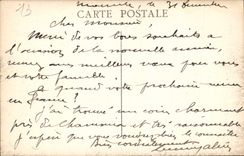 13
le 31 Décembre
CARTE POSTALE
Cher Monsieur,
Merci de vos bons souhaits à
l'occasion de la nouvelle année,
recevez nos meilleurs vœux pour vous
et votre famille.
A quand votre prochaine venue
en France?
J'ai trouvé un coin charmant
près de Chamonix et très raisonnable
J'espère que vous voudrez bien le connaître
Bien cordialement